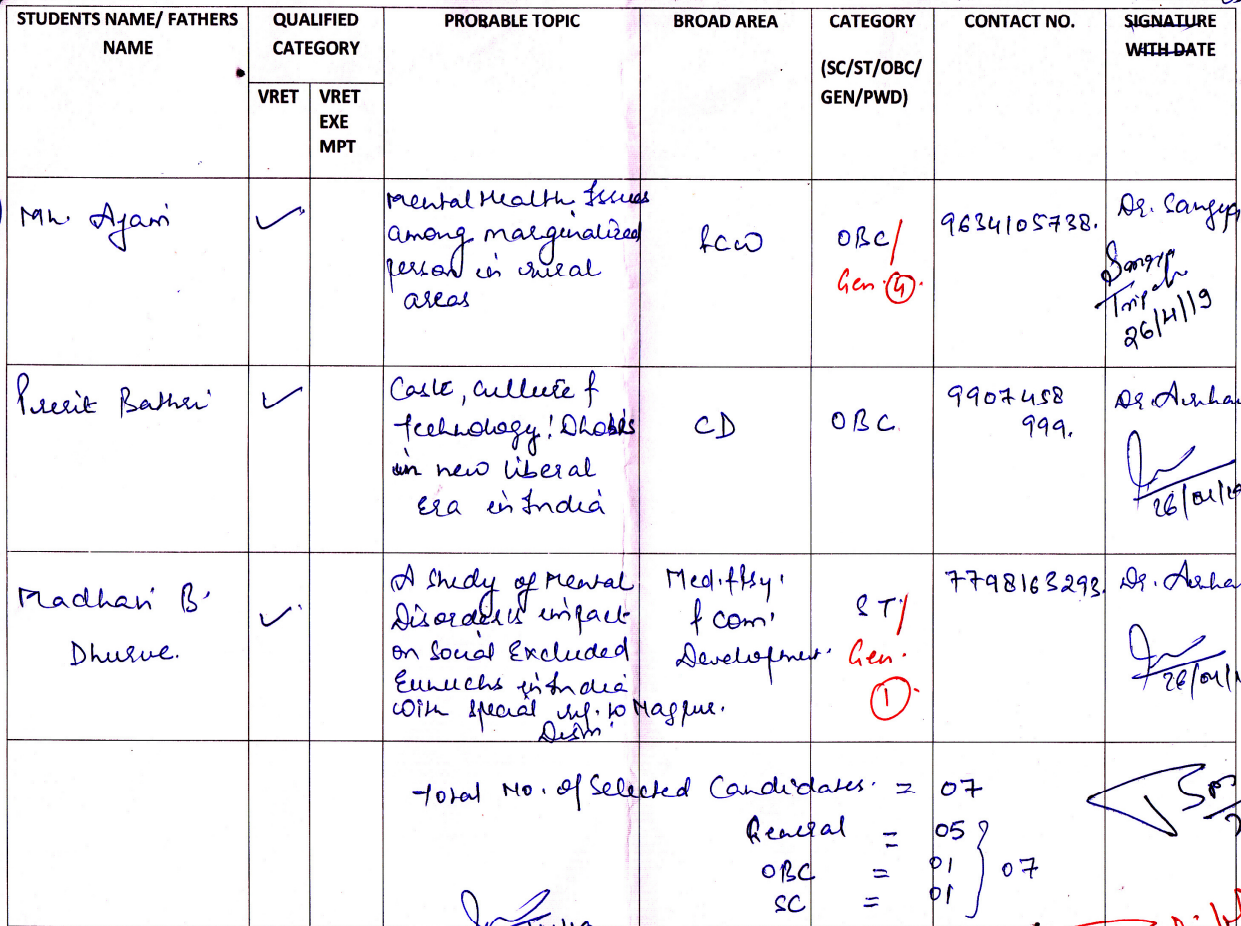 STUDENTS NAME/ FATHERS
NAME
QUALIFIED
CATEGORY
VRET
VRET
EXE
MPT
PROBABLE TOPIC
BROAD AREA
CATEGORY
(SC/ST/OBC/
GEN/PWD)
CONTACT NO.
SIGNATURE
WITH DATE
✓
Mental Health Issues
among marginalized
person in rural
areas
OBC/
Gen.
9634105738.
Dr.
26/4/19
✓
Caste, culture &
technology: Dhobis
in new liberal
era in India
CD
OBC
9907458
999.
Dr.
Madhavi B.
Dhurve.
✓
A Study of Mental
Disorders impact
on Social Excluded
Eunuchs in India
with special ref. to Nagpur.
Distt.
& Com.
Development.
ST/
Gen.
①
7798163293.
Dr.
Total No. of Selected Candidates = 07
General = 05
OBC = 01
SC = 01
07